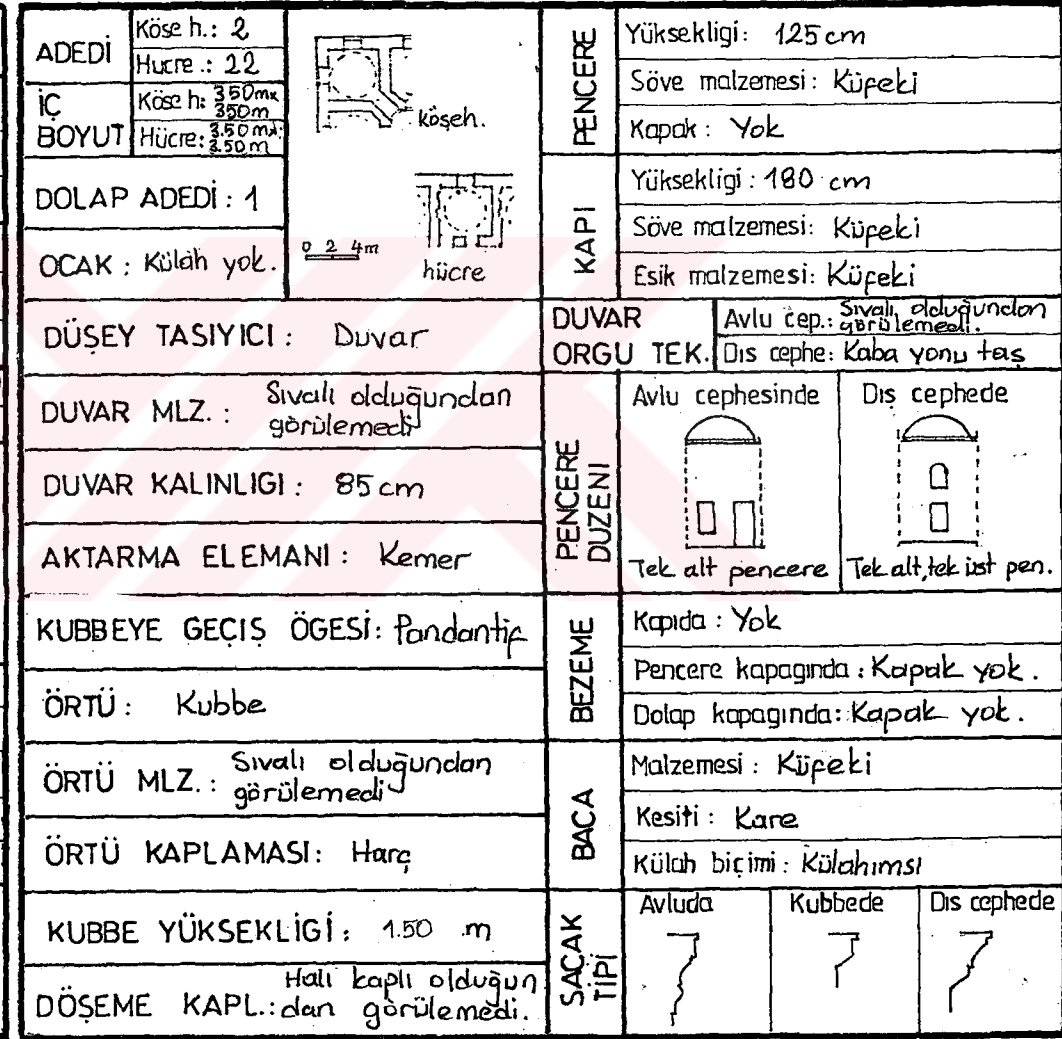 ADEDİ
Köse h.: 2
Hucre .: 22
İÇ BOYUT
Köse h: 350mx
350m
Hücre: 3.50 mx
3.50 m
köşeh.
DOLAP ADEDİ : 1
OCAK : Külâh yok.
0 2 4m
hücre
DÜŞEY TASIYICI : Duvar
DUVAR MLZ. : Sıvalı olduğundan
görülemedi
DUVAR KALINLIGI : 85 cm
AKTARMA ELEMANI : Kemer
KUBBEYE GEÇIŞ ÖGESİ: Pandantif
ÖRTÜ : Kubbe
ÖRTÜ MLZ. : Sıvalı olduğundan
görülemedi
ÖRTÜ KAPLAMASI: Harç
KUBBE YÜKSEKLİGİ : 1.50 m
DÖŞEME KAPL.: Halı kaplı olduğun
dan görülemedi.
PENCERE
Yüksekligi: 125 cm
Söve malzemesi : Küfeki
Kapak : Yok
KAPI
Yüksekligi : 180 cm
Söve malzemesi: Küfeki
Esik malzemesi: Küfeki
DUVAR
ORGU TEK.
Avlu cep.: Sıvalı olduğundan
görülemedi.
Dıs cephe: Kaba yonu taş
PENCERE
DUZENI
Avlu cephesinde
Dış cephede
Tek alt pencere
Tek alt, tek üst pen.
BEZEME
Kapıda : Yok
Pencere kapagında : Kapak yok.
Dolap kapagında: Kapak yok.
BACA
Malzemesi : Küfeki
Kesiti : Kare
Külah biçimi : Külahımsı
SAÇAK
TİPİ
Avluda
Kubbede
Dıs cephede